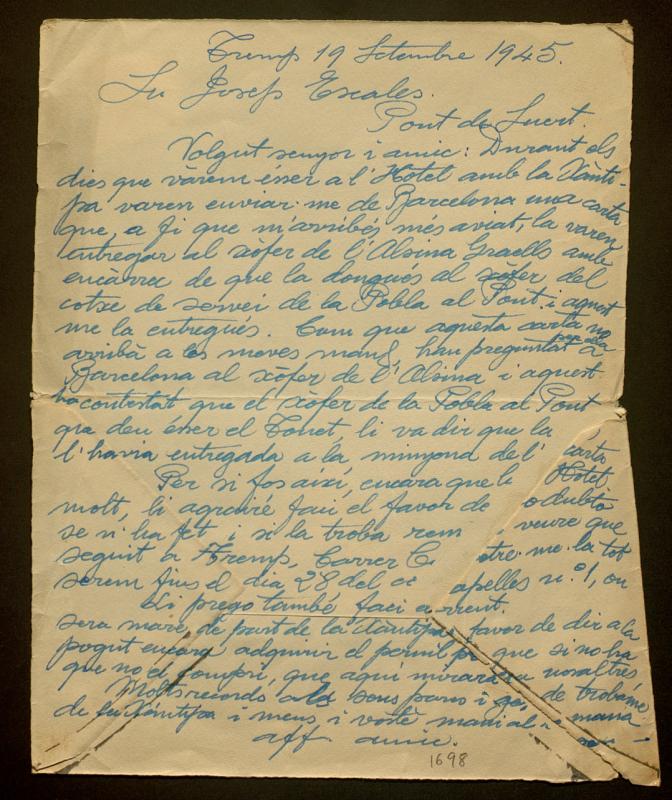 Tremp 19 Setembre 1945.
Sr Josep Escales.
Pont de Suert.
Volgut senyor i amic: Durant els
dies que vàrem ésser a l'Hotel amb la Xànti-
pa varen enviar-me de Barcelona una carta
que, a fi que m'arribés més aviat, la varen
entregar al xòfer de l'Alsina Graells amb
encàrrec de que la dongués al xòfer del
cotxe de servei de la Pobla al Pont i aquest
me la entregués. Com que aquesta carta no
arribà a les meves mans, han preguntat a
Barcelona al xòfer de l'Alsina i aquest
ha contestat que el xòfer de la Pobla al Pont
que deu ésser el Tonet, li va dir que la carta
l'havia entregada a la minyona de l'Hotel.
Per si fos així, encara que ho dubto
molt, li agrairé faci el favor de veure que
se n'ha fet i si la troba remetre-me-la tot
seguit a Tremp, Carrer Capelles n.º 1, on
serem fins el dia 28 del corrent.
Li prego també faci el favor de dir a la
seva mare de part de la Xàntipa que si no ha
pogut encara adquirir el pernil
que no el compri, que aquí mirarem nosaltres de trobar-ne
Molts records als seus pares i germana
de la Xàntipa i meus i vostè mani al seu
aff. amic.
1698